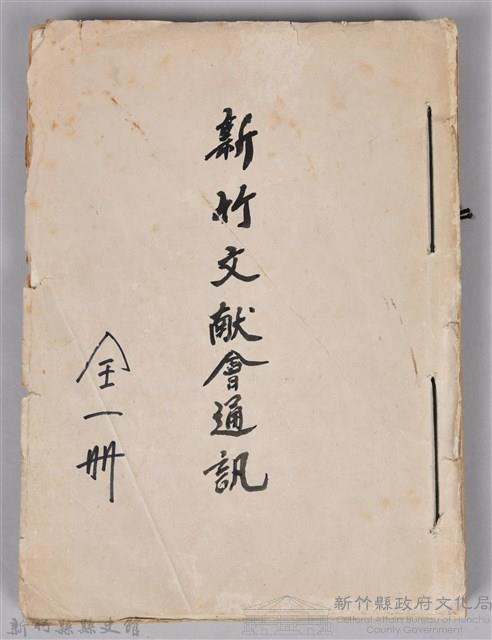 新竹文献會通訊
全一册
新竹縣縣史館
新竹縣政府文化局
Cultural Affairs Bureau of Hsinchu
County Government